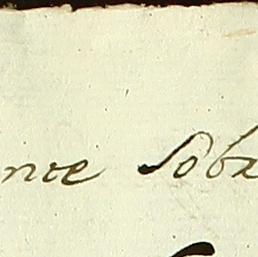 nce Sob